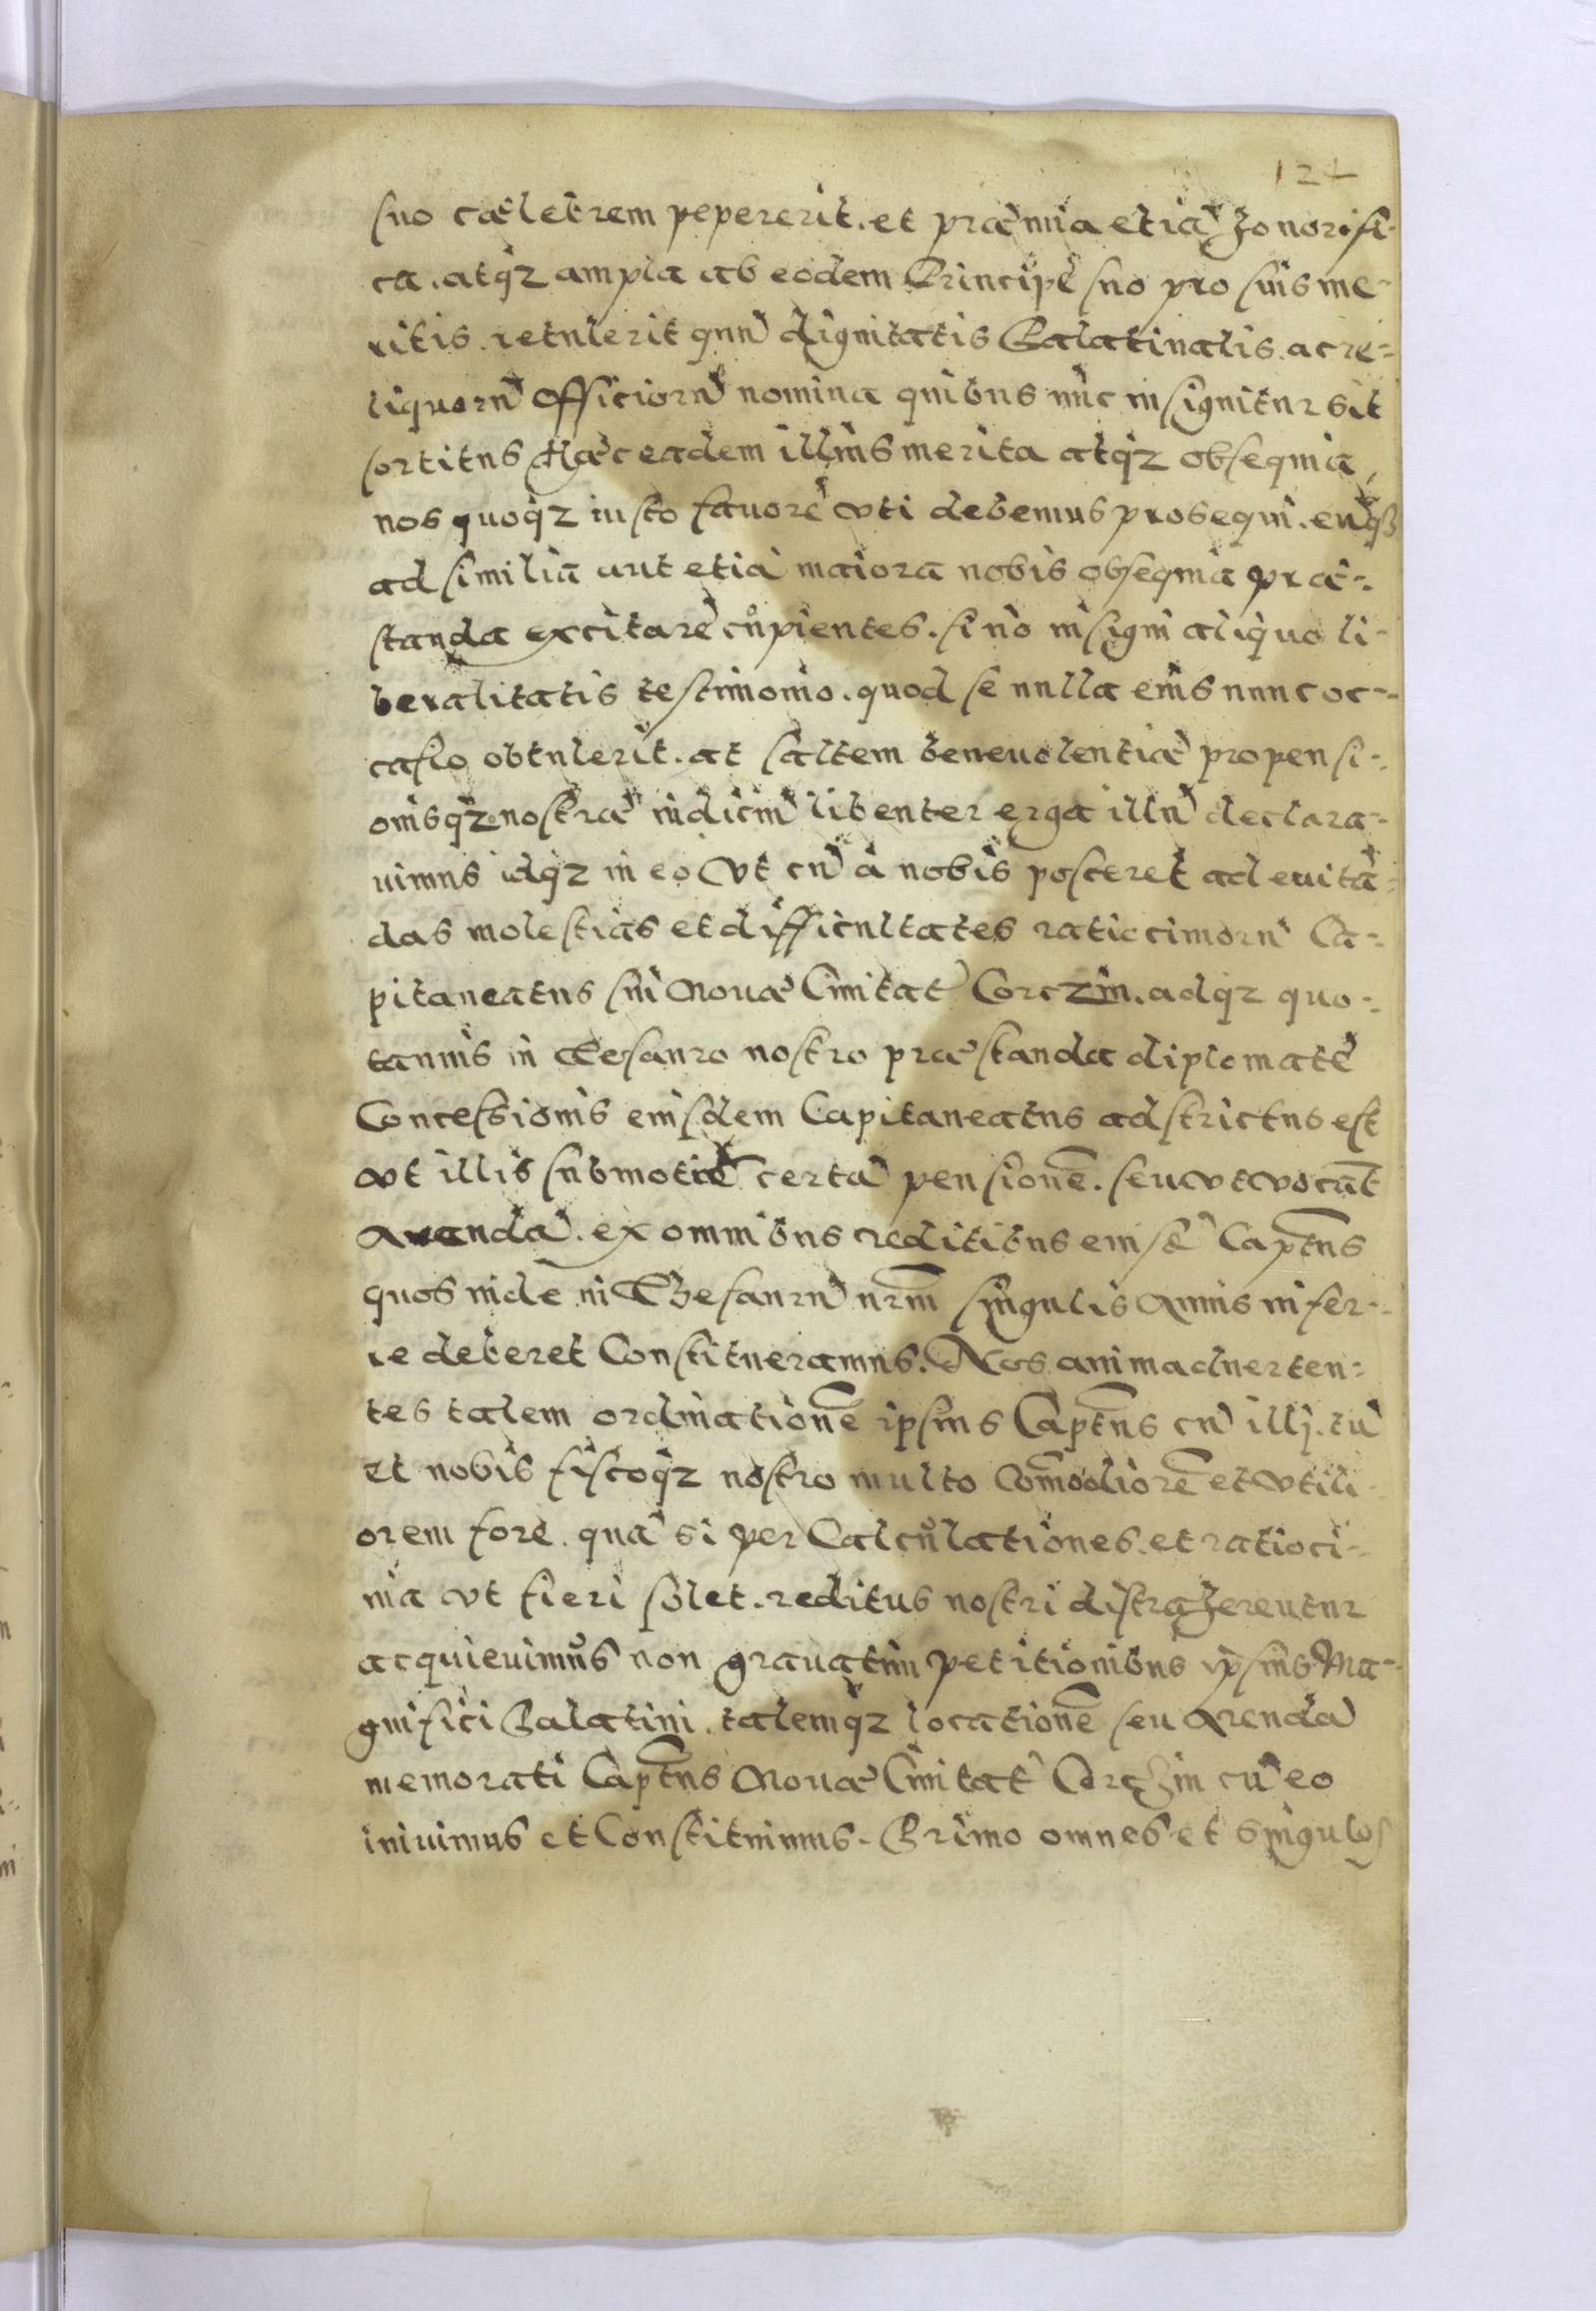 124
suo caelebrem pepererit. et praemia etiā honorifi-
ca. atq́z ampla ab eodem Principe suo pro suis me-
ritis. retulerit quū dignitatis Palatinalis. ac re-
liquorū officiorū nomina quibus nūc insignitur sit
sortitus Haec eadem illius merita atq́z obsequia,
nos quoq́z iusto favore vti debemus prosequi. eūqз
ad similia aut etiā maiora nobis obsequia prae-
standa excitare cupientes. si nō insigni aliquo li-
beralitatis testimonio. quod se nulla eius nunc oc-
casio obtulerit. at saltem beneuolentiae propensi-
onisq́z nostrae indiciū libenter erga illū declara-
uimus idq́z in eo Vt cū à nobis posceret ad euitā-
das molestias et difficultates ratiocinorū Ca-
pitaneatus sui Nouae Ciuitat Corczin. adq́z quo-
tannis in Tesauro nostro praestanda diplomate
Concessionis eiusdem Capitaneatus adstrictus est
vt illis submotis certā pensionē. seu vt vocāt
Arandā. ex omnibus reditibus eiusē Capᵗneus
quos inde in Thesaurū nr̄m singulis Annis infer-
re deberet Constitueramus. Nos animaduerten-
tes talem ordinationē ipsius Captn̄us cū illj. tū
et nobis fiscoq́z nostro multo Com̄odiorē et vtili-
orem fore. quā si per Calculationes. et ratioci-
nia vt fieri solet. reditus nostri distraherentur
acquieuimus non grauatim petitionibus ipsius Ma-
gnifici Palatini. talemq́z locationē seu Arendā
memorati Captn̄us Nouae Ciuitat Corczin cū eo
iniuimus et Constituimus. Primo omnes et singulos